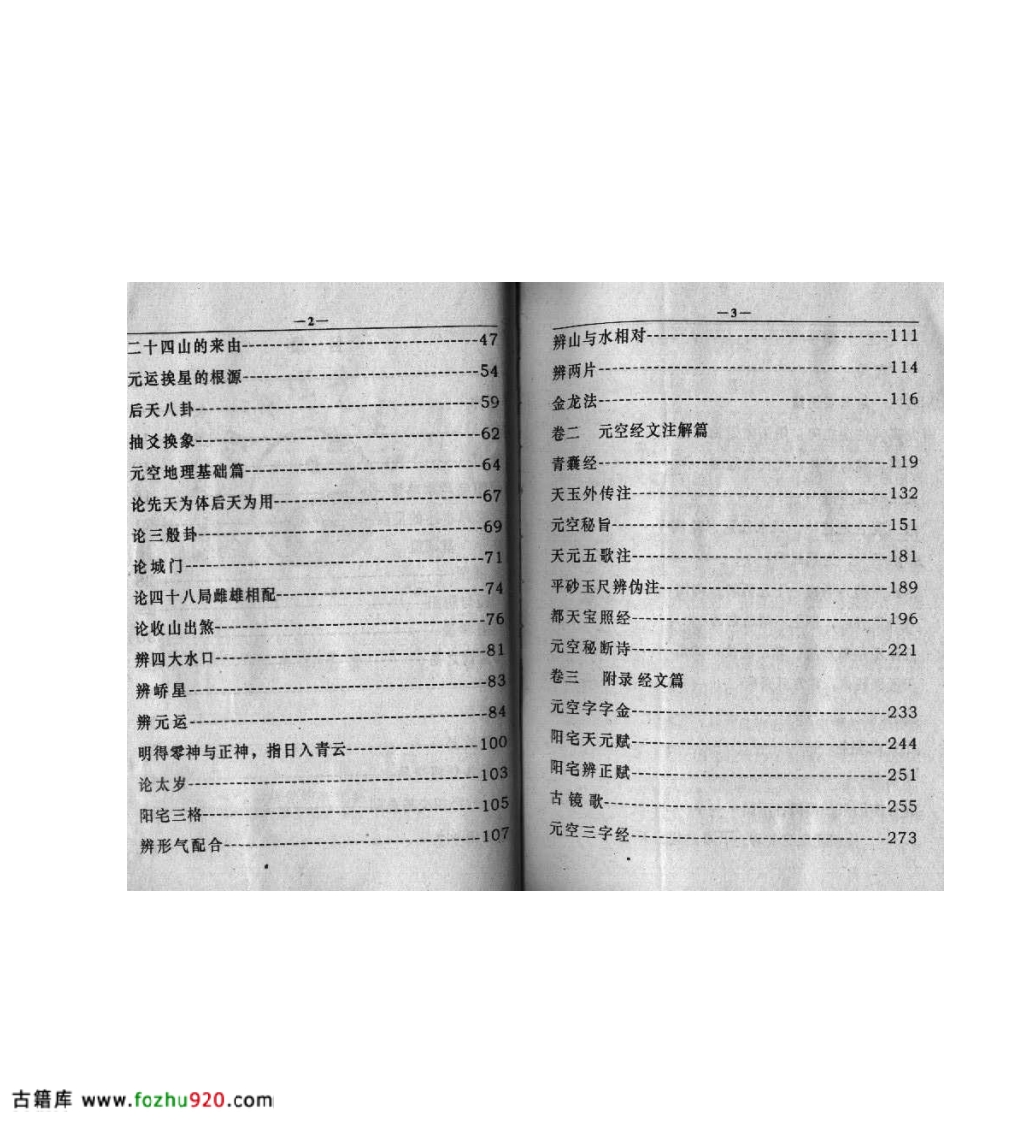 —2—
二十四山的来由------47
元运挨星的根源------54
后天八卦------59
抽爻换象------62
元空地理基础篇------64
论先天为体后天为用------67
论三般卦------69
论城门------71
论四十八局雌雄相配------74
论收山出煞------76
辨四大水口------81
辨峤星------83
辨元运------84
明得零神与正神，指日入青云------100
论太岁------103
阳宅三格------105
辨形气配合------107
—3—
辨山与水相对------111
辨两片------114
金龙法------116
卷二 元空经文注解篇
青囊经------119
天玉外传注------132
元空秘旨------151
天元五歌注------181
平砂玉尺辨伪注------189
都天宝照经------196
元空秘断诗------221
卷三 附录 经文篇
元空字字金------233
阳宅天元赋------244
阳宅辨正赋------251
古镜歌------255
元空三字经------273
古籍库 www.fozhu920.com